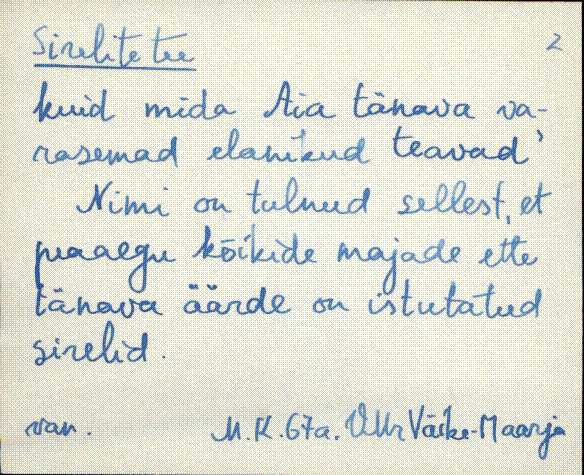 Sirelite tee 2
kuid mida Aia tänava va-
rasemad elanikud teavad'
Nimi on tulnud sellest, et
peaaegu kõikide majade ette
tänava äärde on istutatud
sirelid.
van. M.K. 67a. Väike-Maarja